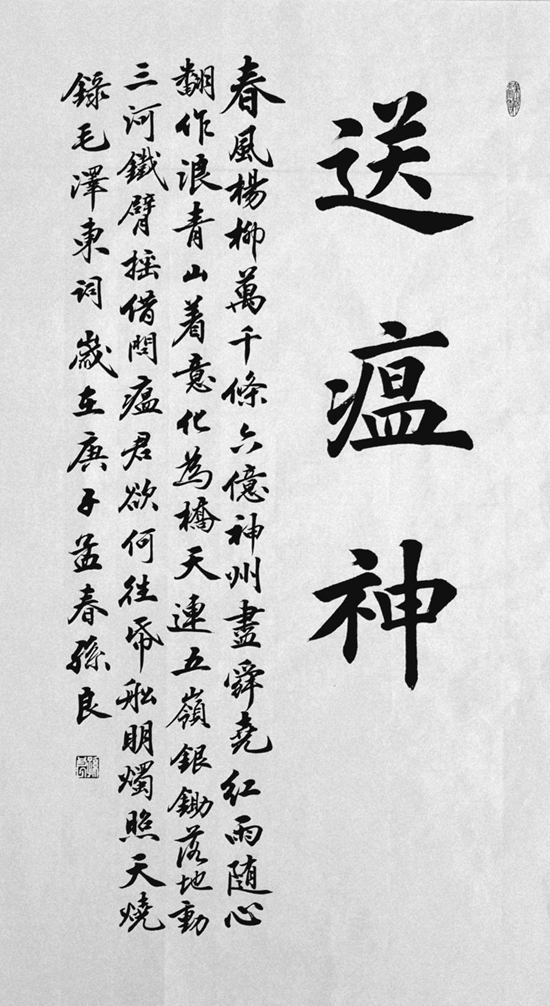 送瘟神
春風楊柳萬千條六億神州盡舜堯紅雨随心
翻作浪青山着意化為橋天連五嶺銀鋤落地動
三河鐵臂摇借問瘟君欲何往帋船明燭照天燒
錄毛澤東词歲在庚子孟春孫良